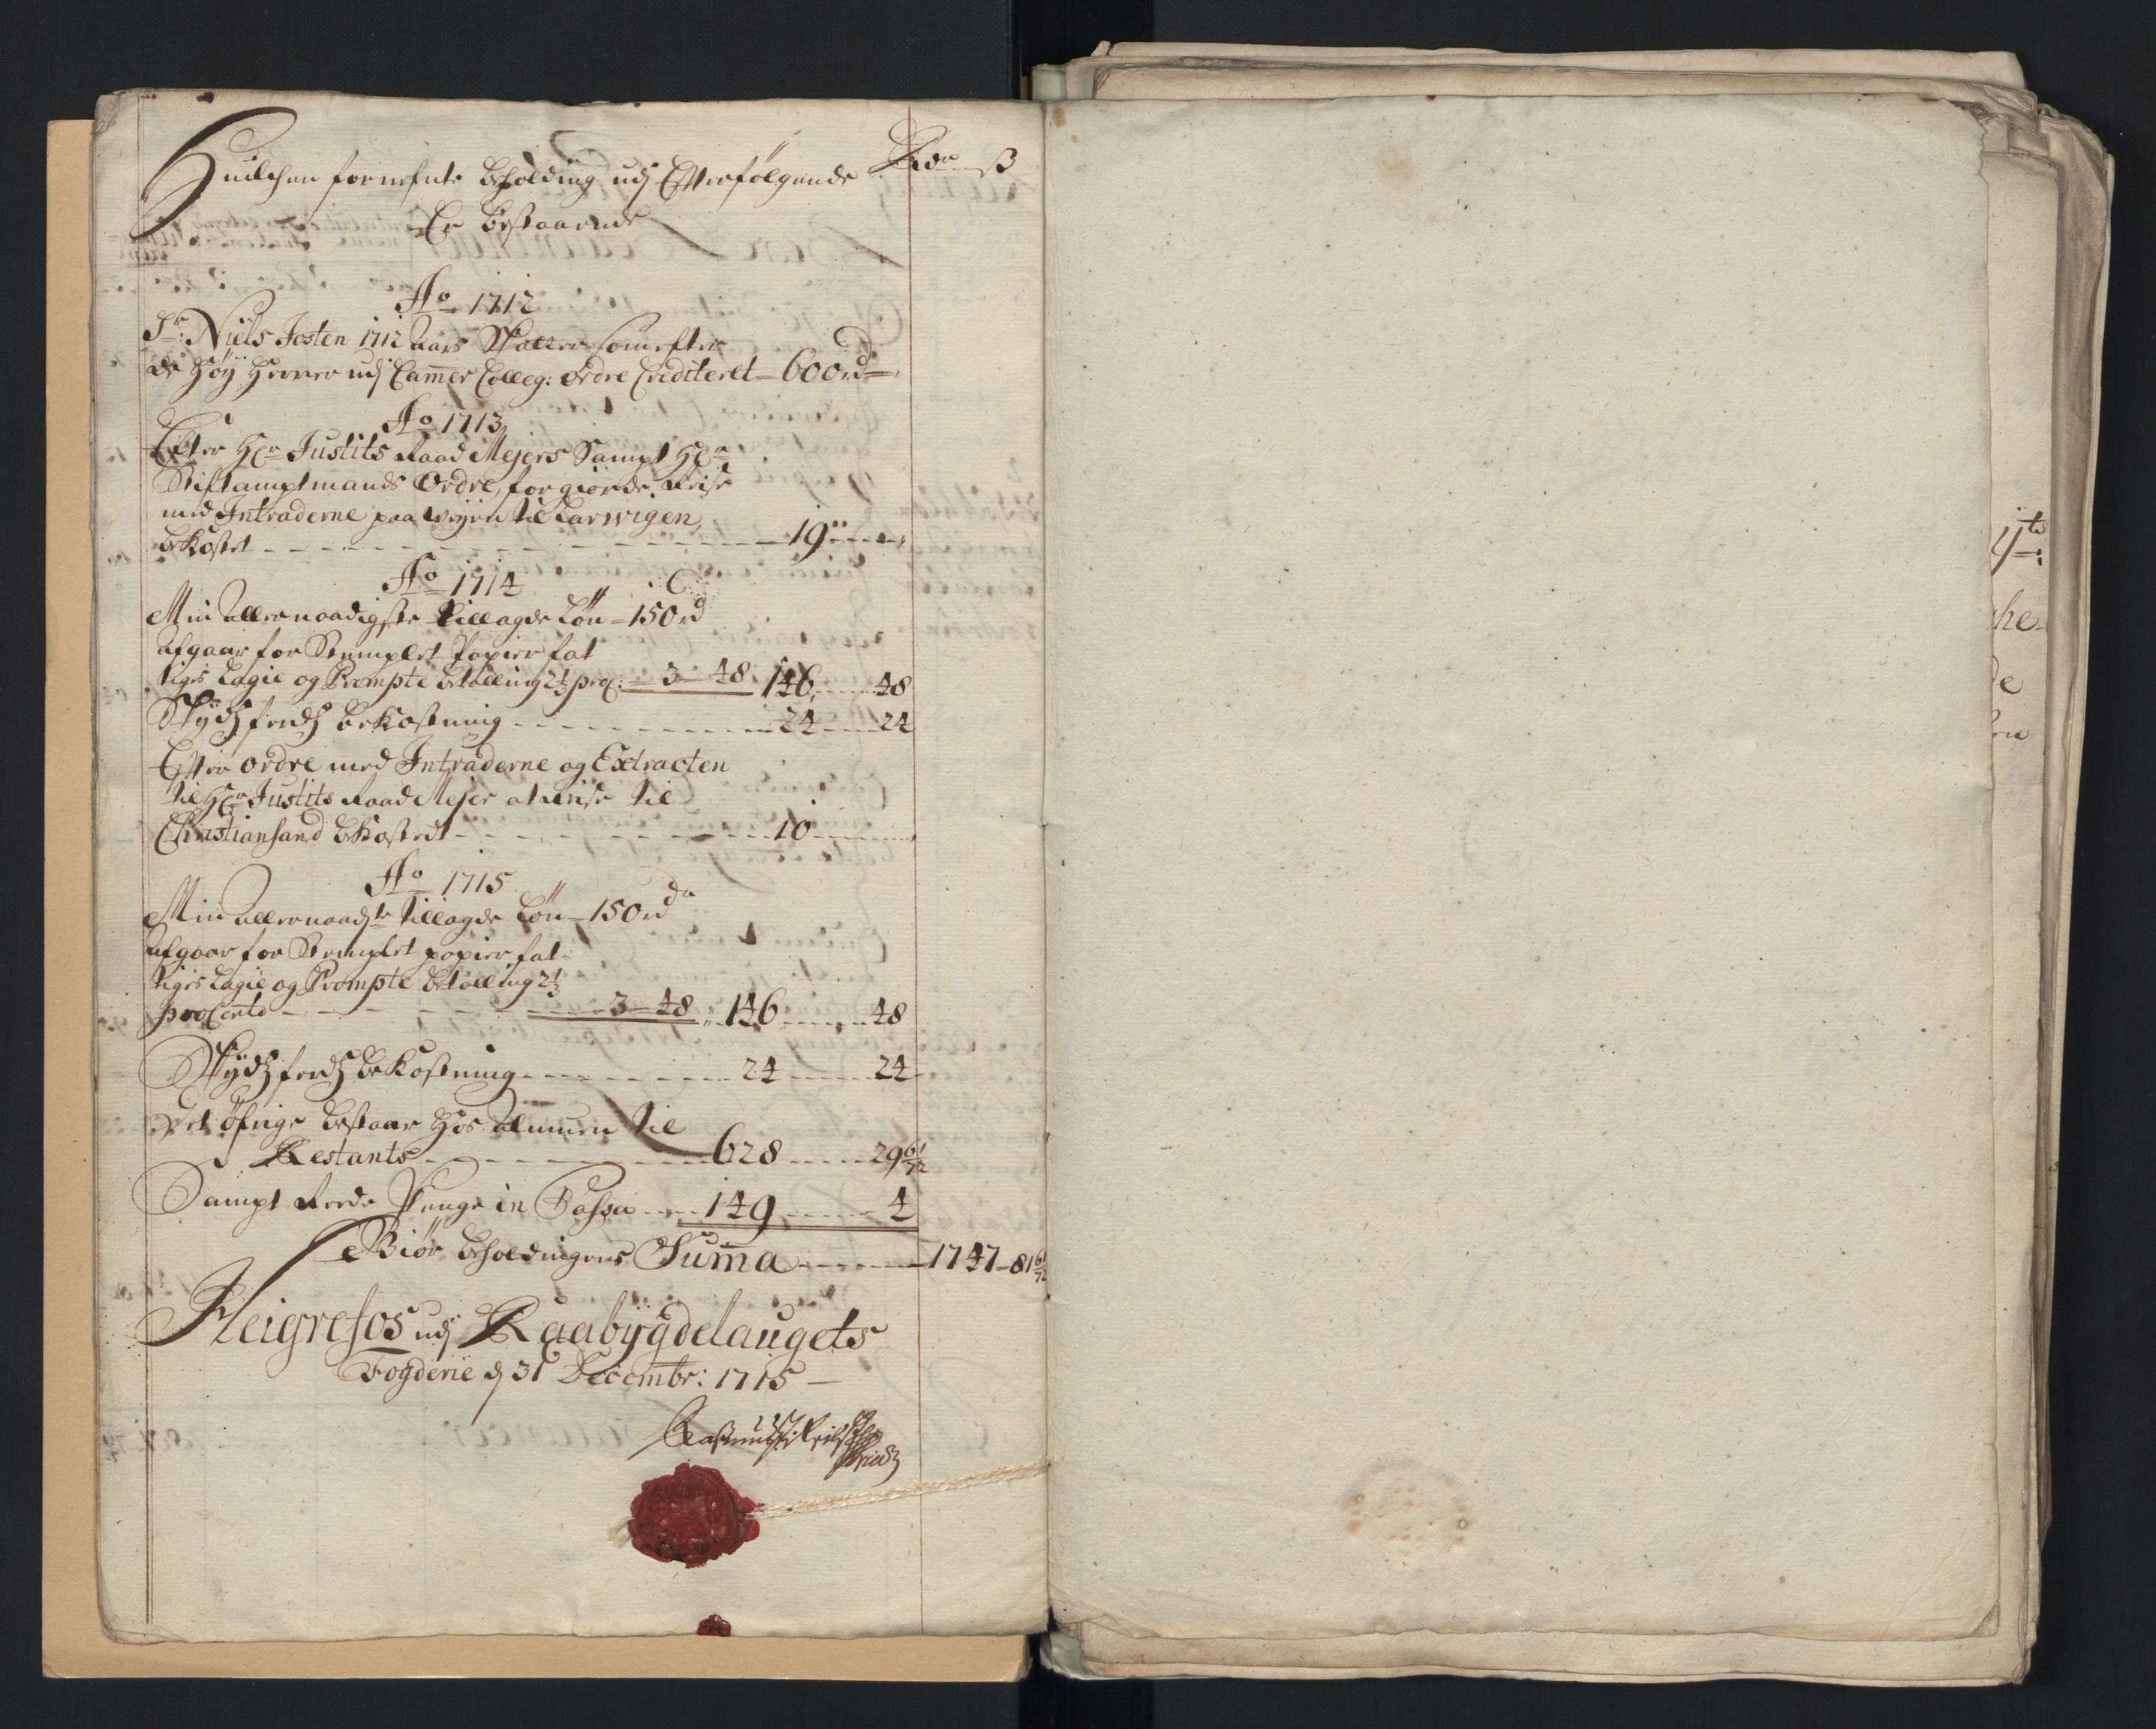 Huilchen fornefnte beholding udj Effterfølgende Rdr ß
Er bestaarende
Ao 1712
Sr: Niels Josten 1712 Aars Skatter som efter
de Høy Herrer udj Camer Colleg: Ordre Crediteret 600 rd
Ao 1713
Efter Hr Justits Raad Mejers Sampt Hr
Stiftamptmands Ordre, for giorde Reise
med Intraderne paa Vejen til Larwigen,
bekostet 19
Ao 1714
Min allernaadigste tillagde Løn 150 rd
afgaar for Stemplet Papier fat
tiges Lagie og Prompte betalling 2⅓ proC: 3 48 146 48
Skydsferds bekostning 24 24
Effter Ordre med Intraderne og Extracten
til Hr Justits Raad Mejer at reise til
Christiansand bekostedt 10
Ao 1715
Min allernaadste tillagde Løn 150 rdr
afgaar for Stemplet papier, fat
tiges Lagie og Prompte betalling 2⅓
proCento 3 48 146 48
Skydsferds bekostning 24 24
Det øfrige bestaar hos Almuen til
Restants 628 29 61/72
Sampt Rede Penge in Cassa 149 4
Bliör beholdingens Suma 1747 81 61/72
Fleigrefos udj Raabygdelaugets
Fogderie d 31 Decembr: 1715
4ts:
he
de